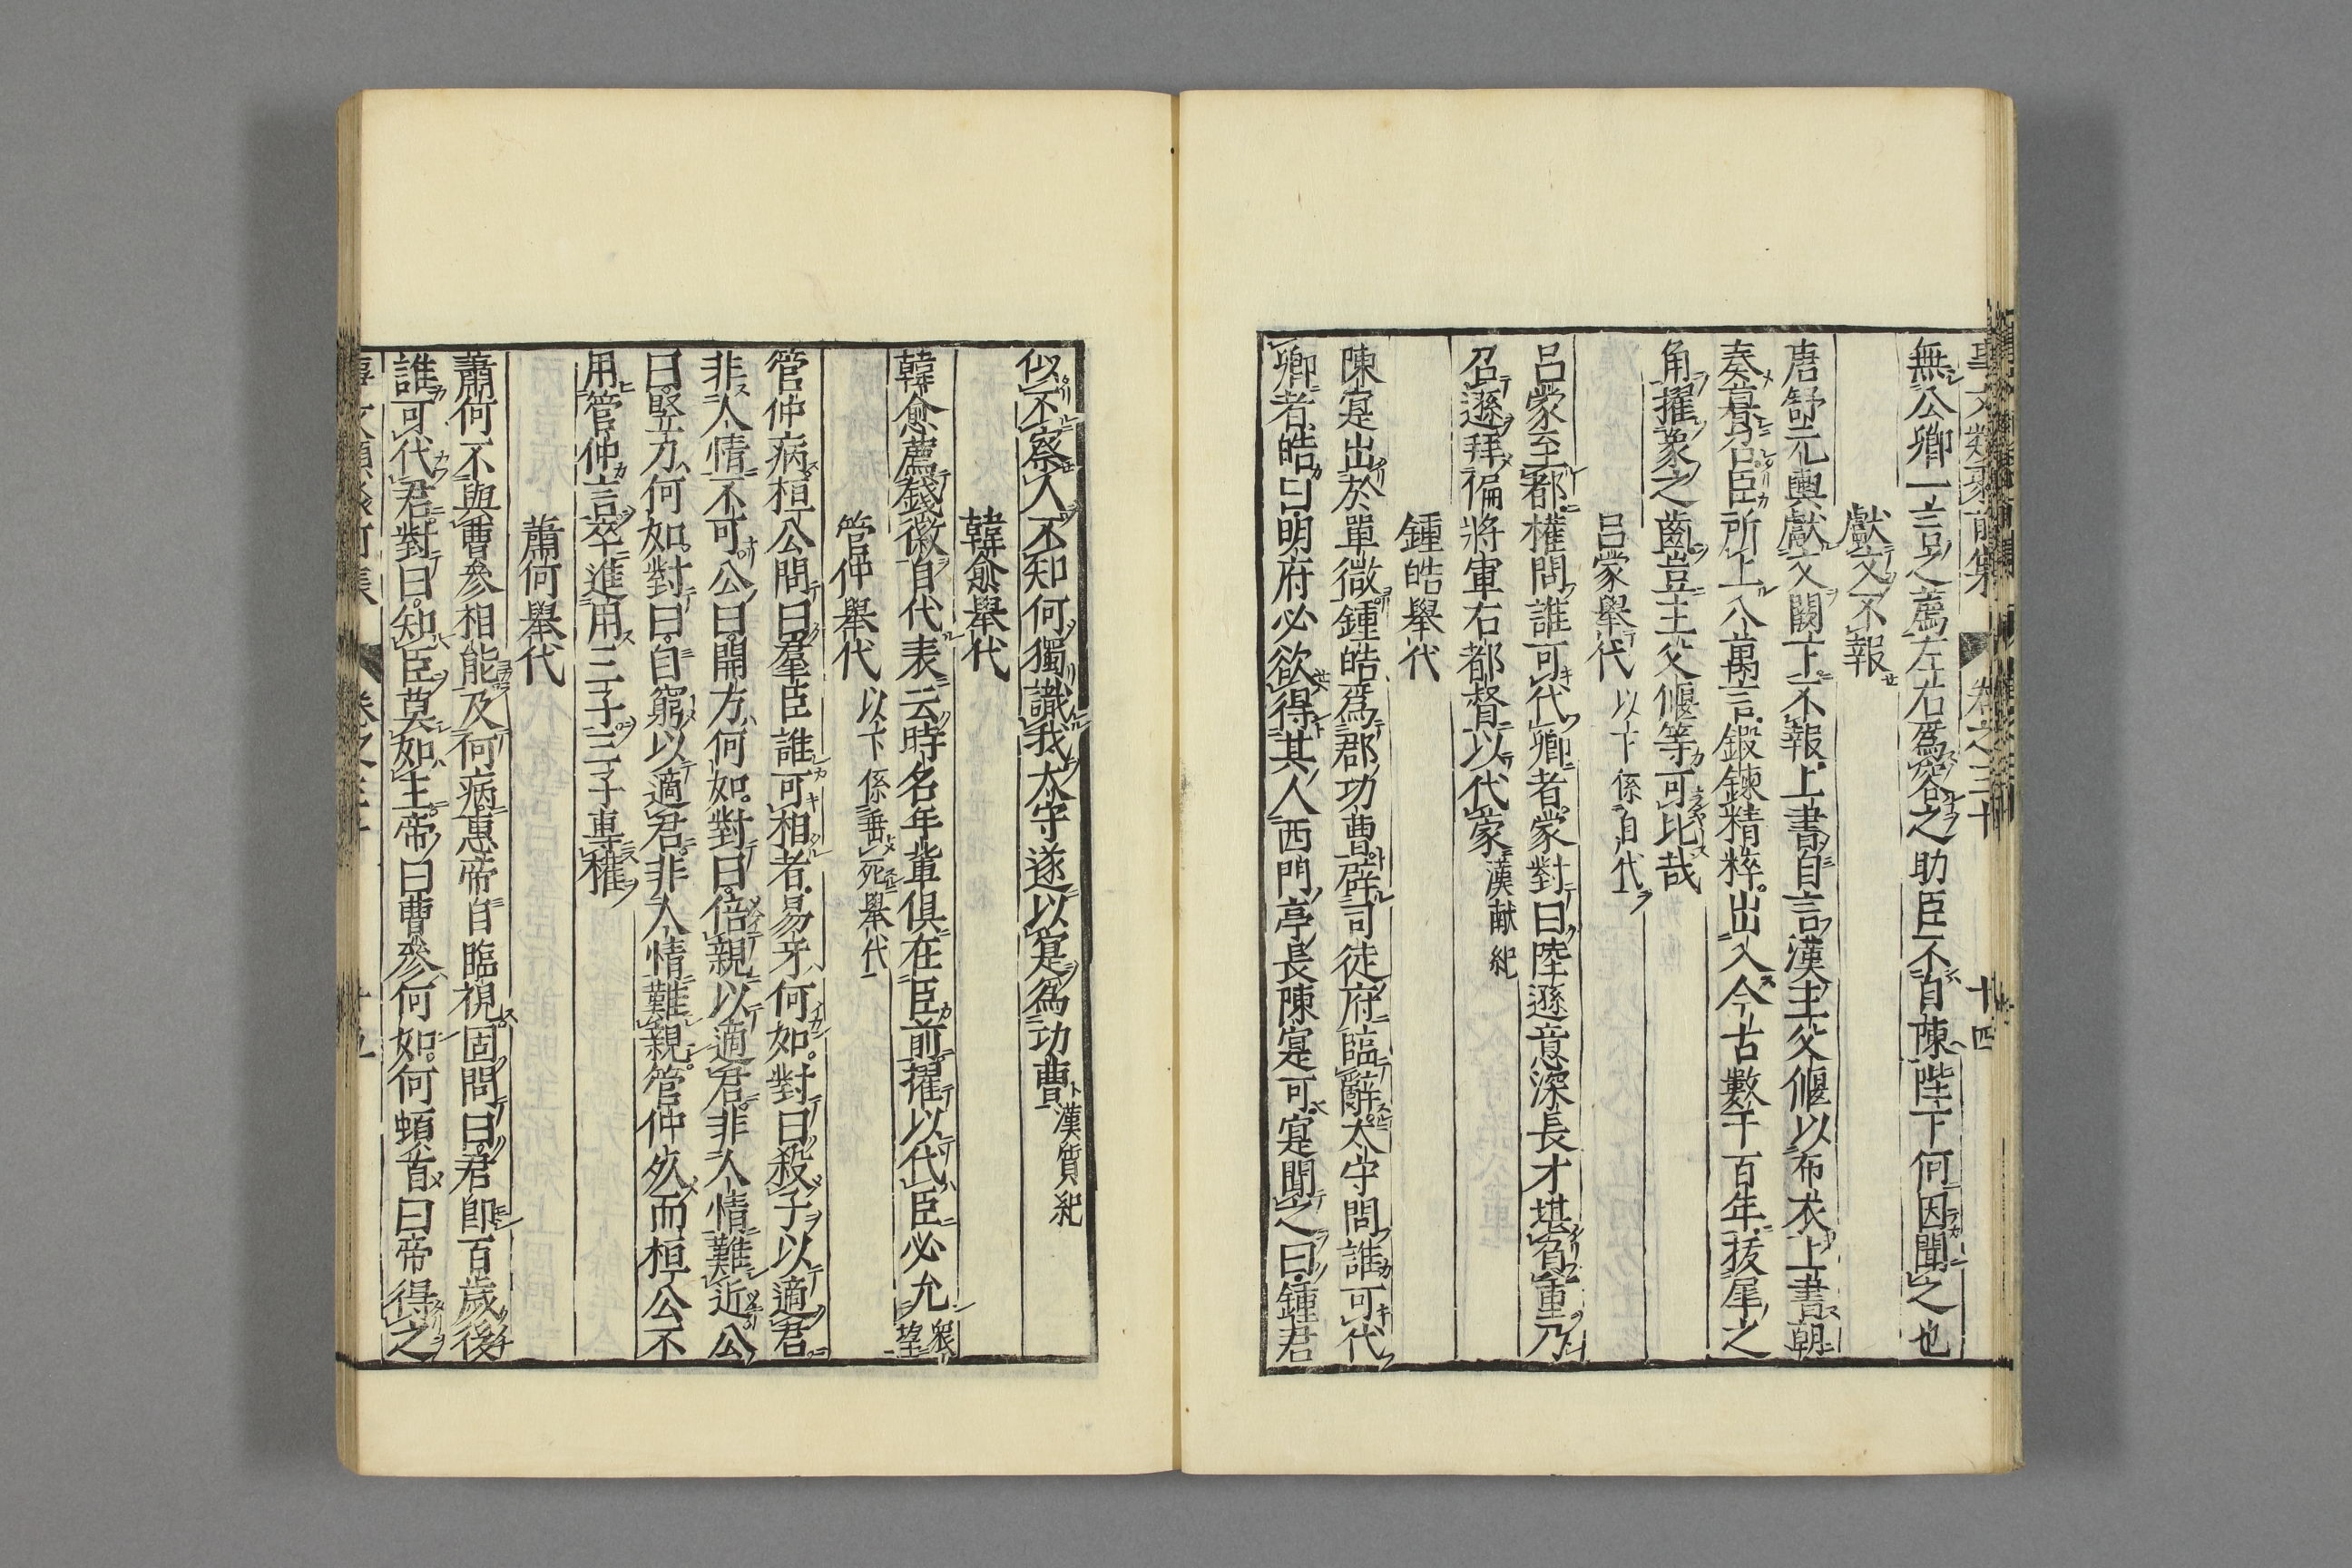 事文類聚前集 卷之三十 十四
無公卿一言之薦左右爲容之助臣不自陳陛下何因聞之也
獻文不報
唐舒元輿獻文闕下不報上書自言漢主父偃以布衣上書朝
奏暮召臣所上八萬言鍛鍊精粹出入今古數千百年拔犀之
角擢象之齒豈主父偃等可比哉
呂蒙舉代 以下係自代
呂蒙至都權問誰可代卿者蒙對曰陸遜意深長才堪負重乃
召遜拜褊將軍右都督以代蒙 漢献紀
鍾皓舉代
陳寔出於單微鍾皓爲郡功曹辟司徒府臨辭太守問誰可代
卿者皓曰明府必欲得其人西門亭長陳寔可寔聞之曰鍾君
似不察人不知何獨識我太守遂以寔爲功曹 漢質紀
韓愈舉代
韓愈薦錢徽自代表云時名年輩俱在臣前擢以代臣必允衆望
管仲舉代 以下係垂死舉代
管仲病桓公問曰羣臣誰可相者易牙何如對曰殺子以適君
非人情不可公曰開方何如對曰倍親以適君非人情難近公
曰豎刀何如對曰自窮以適君非人情難親管仲死而桓公不
用管仲言卒進用三子三子專權
蕭何舉代
蕭何不與曹參相能及何病惠帝自臨視固問曰君卽百歲後
誰可代君對曰知臣莫如主帝曰曹參何如何頓首曰帝得之